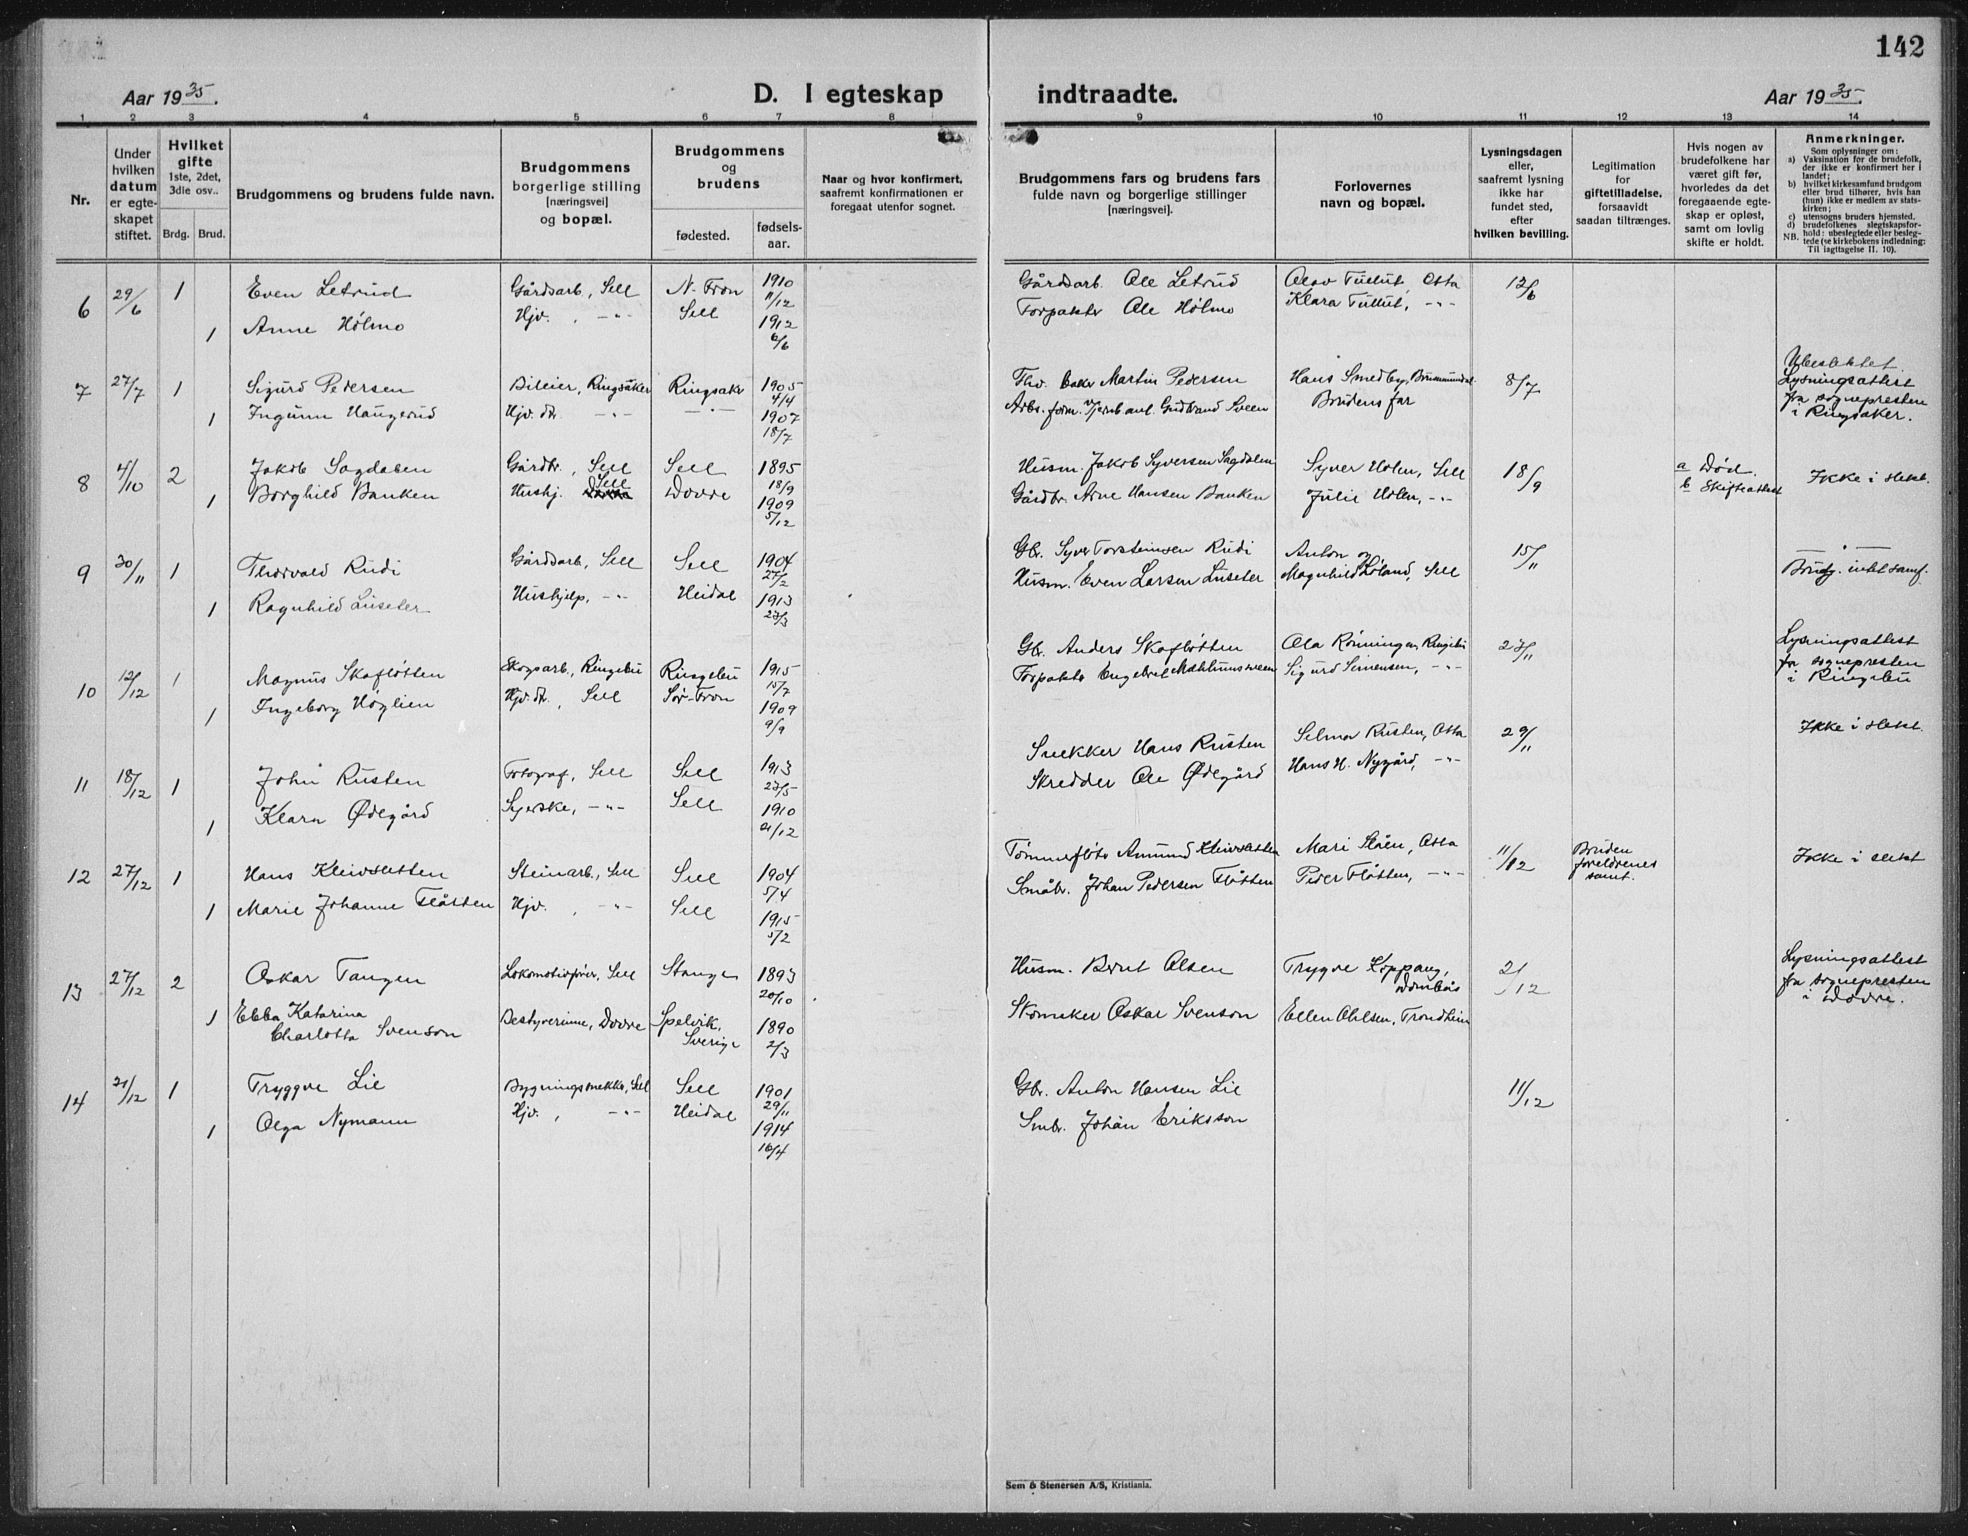 142
Aar 1935.
D. I egteskap indtraadte.
Aar 1935.
1 2 3 4 5 6 7 8 9 10 11 12 13 14
Nr.
Under
hvilken
datum
er egte-
skapet
stiftet.
Hvilket
gifte
1ste, 2det,
3die osv..
Brdg. Brud.
Brudgommens og brudens fulde navn.
Brudgommens
borgerlige stilling
[næringsvei]
og bopæl.
Brudgommens
og
brudens
fødested.
fødsels-
aar.
Naar og hvor konfirmert,
saafremt konfirmationen er
foregaat utenfor sognet.
Brudgommens fars og brudens fars
fulde navn og borgerlige stillinger
[næringsvei].
Forlovernes
navn og bopæl.
Lysningsdagen
eller,
saafremt lysning
ikke har
fundet sted,
efter
hvilken bevilling.
Legitimation
for
giftetilladelse,
forsaavidt
saadan tiltrænges.
Hvis nogen av
brudefolkene har
været gift før,
hvorledes da det
foregaaende egte-
skap er opløst,
samt om lovlig
skifte er holdt.
Anmerkninger.
Som oplysninger om:
a) Vaksination for de brudefolk,
der ikke er konfirmert her i
landet;
b) hvilket kirkesamfund brudgom
eller brud tilhører, hvis han
(hun) ikke er medlem av stats-
kirken;
c) utensogns bruders hjemsted.
d) brudefolkenes slegtskapsfor-
hold: ubeslegtede eller besleg-
NB. tede (se kirkebokens indledning:
Til iagttagelse II. 10).
6 29/6 1 Even Letrud Gårdsarb., Sell N-Fron 1910 11/12 Gårdsarb. Ole Letrud Olav Tullut, Otta 12/6
1 Anne Hølmo Hjv. , -"- Sell 1912 6/6 Forpakter Ole Hølmo Klara Tullut, -"-
7 27/7 1 Sigurd Pedersen Bileier, Ringsaker Ringsaker 1905 4/4 Martin Pedersen Hans Smedby, Brummundal 8/7 Ubeslektet.
Lysningsattest
fra sognepresten
i Ringsaker.
1 Ingunn Haugerud Hjv. dtr. -"- -"- 1907 18/7 Gudbrand Sveen Brudens far
8 4/10 2 Jakob Sagdalen Gårdbr., Sell Sell 1895 18/9 Husm. Jakob Syversen Sagdalen Syver Holen, Sell 18/9 a Død.
b Skifteattest Ikke i slekt.
1 Borghild Banken Hushj. Sell Dovre 1909 5/12 Gårdbr. Arne Hansen Banken Julie Holen, -"-
9 30/11 1 Thorvald Rudi Gårdsarb., Sell Sell 1904 27/2 Gbr. Syver Torsteinsen Rudi Anton og 15/11 -"-
1 Ragnhild Luseter Hushjelp, -"- Heidal 1913 23/3 Husm. Even Larsen Luseter Magnhild Løland, Sell
10 12/12 1 Magnus Skafløtten Skogsarb., Ringebu Ringebu 1915 15/7 Gbr. Anders Skafløtten Ola Rønningen, Ringebu 23/11 Lysningsattest
fra sognepresten
i Ringebu
1 Ingeborg Høglien Hjv. dtr., Sell Sør-Fron 1909 9/9 Forpakter Engebret Mæhlumsveen Sigurd Simensen, -"-
11 18/12 1 John Rusten Fotograf, Sell Sell 1913 23/5 Snekker Hans Rusten Selmer Rusten, Otta 29/11 Ikke i slekt.
1 Klara Ødegård Syerske, -"- Sell 1910 21/12 Skredder Ole Ødegård Hans H. Nygård, -"-
12 27/12 1 Hans Kleivsletten Steinarb., Sell Sell 1904 5/4 Tømmerfløter Amund Kleivsletten Mari Slåen, Otta 11/12 Bruden
foreldrenes
samt. Ikke i slekt
1 Marie Johanne Fløtten Hjv. , -"- Sell 1915 5/2 Småbr. Johan Pedersen Fløtten Peder Fløtten, -"-
13 27/12 2 Oskar Tangen Lokomotivfører, Sell Stange 1893 20/10 Husm. Bernt Olsen Trygve Koppang,
Dombås 21/12 Lysningsattest
fra sognepresten
i Dovre.
1 Ebba Katarina
Charlotta Svenson Bestyrerinne, Dovre Spelvik,
Sverige 1890 2/3 Skomaker Oskar Svenson Ellen Ohlsen, Trondheim
14 21/12 1 Tryggve Lie Bygningssnekker, Sell Sell 1901 29/11 Gbr. Anton Hansen Lie 11/12
1 Olga Nymann Hjv. , -"- Heidal 1914 16/4 Smbr. Johan Eriksson
Sem & Stenersen A/S, Kristiania.